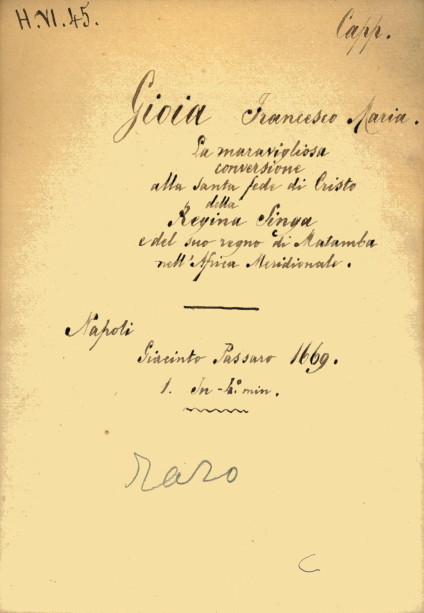 H.VI.45.
Capp.
Gioia Francesco Maria.
La maravigliosa
conversione
alla santa fede di Cristo
della
Regina Singa
e del suo regno di Matamba
nell'Africa Meridionale.
Napoli
Giacinto Passaro 1669.
1. In-4º min.
raro
C